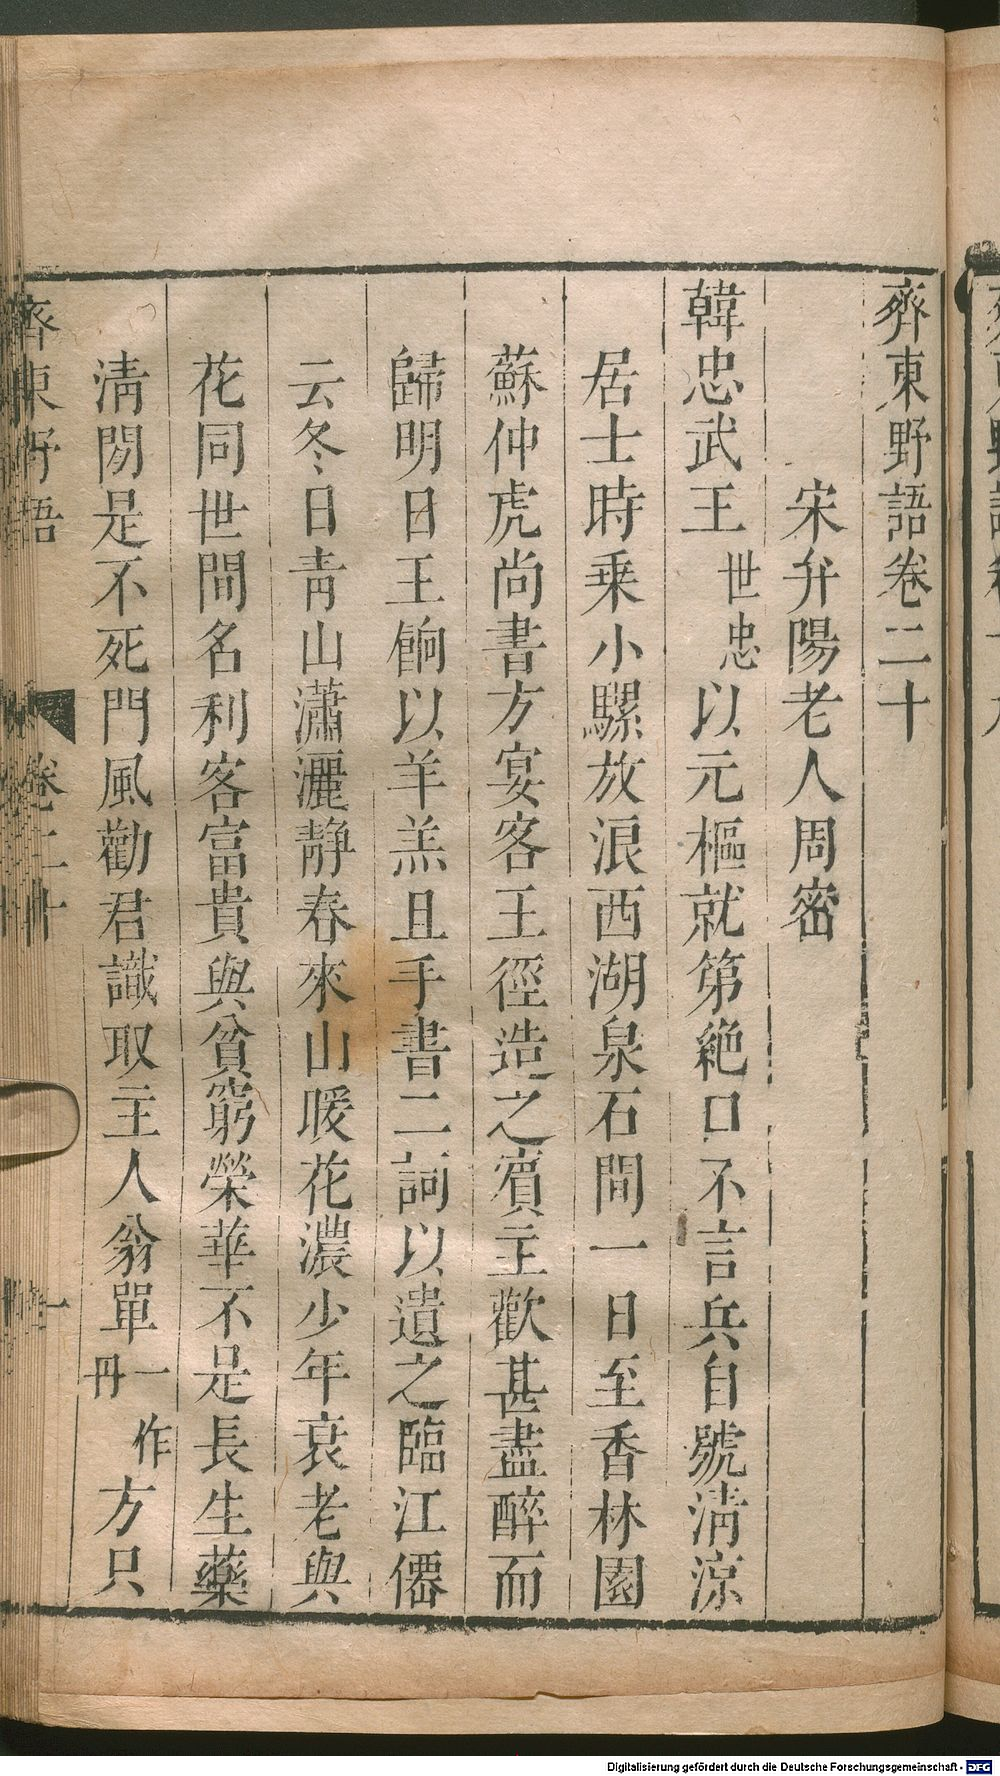 齊東野語卷二十
宋弁陽老人周密
韓忠武王世忠以元樞就第絶口不言兵自號淸涼
居士時乗小騾放浪西湖泉石間一日至香林園
蘇仲虎尚書方宴客王徑造之賔主歡甚盡醉而
歸明日王餉以羊羔且手書二詞以遺之臨江僊
云冬日靑山瀟灑靜春來山暖花濃少年衰老與
花同世間名利客富貴與貧窮榮華不是長生藥
淸閒是不死門風勸君識取主人翁單一作丹方只
齊東野語
卷二十
一
Digitalisierung gefördert durch die Deutsche Forschungsgemeinschaft - DFG